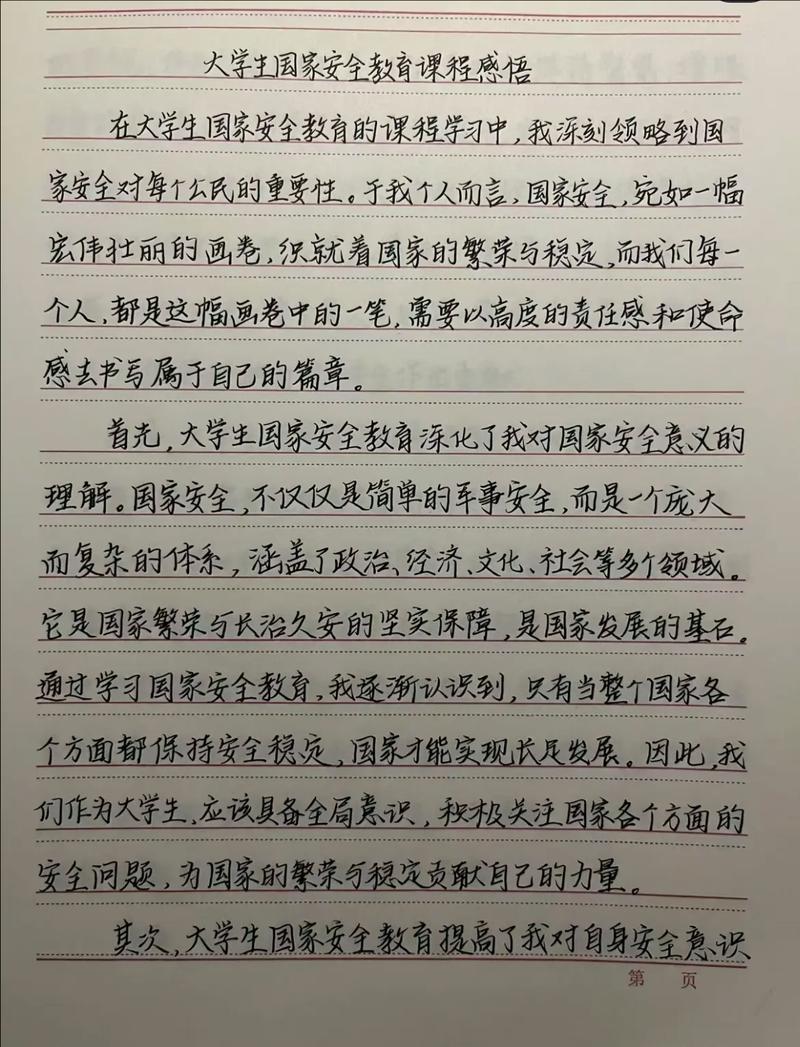 大学生国家安全教育课程感悟
在大学生国家安全教育的课程学习中，我深刻领略到国
家安全对每个公民的重要性。于我个人而言，国家安全，宛如一幅
宏伟壮丽的画卷，织就着国家的繁荣与稳定，而我们每一
个人，都是这幅画卷中的一笔，需要以高度的责任感和使命
感去书写属于自己的篇章。
首先，大学生国家安全教育深化了我对国家安全意义的
理解。国家安全，不仅仅是简单的军事安全，而是一个庞大
而复杂的体系，涵盖了政治、经济、文化、社会等多个领域。
它是国家繁荣与长治久安的坚实保障，是国家发展的基石。
通过学习国家安全教育，我逐渐认识到，只有当整个国家各
个方面都保持安全稳定，国家才能实现长足发展。因此，我
们作为大学生，应该具备全局意识，积极关注国家各个方面的
安全问题，为国家的繁荣与稳定贡献自己的力量。
其次，大学生国家安全教育提高了我对自身安全意识
第 页